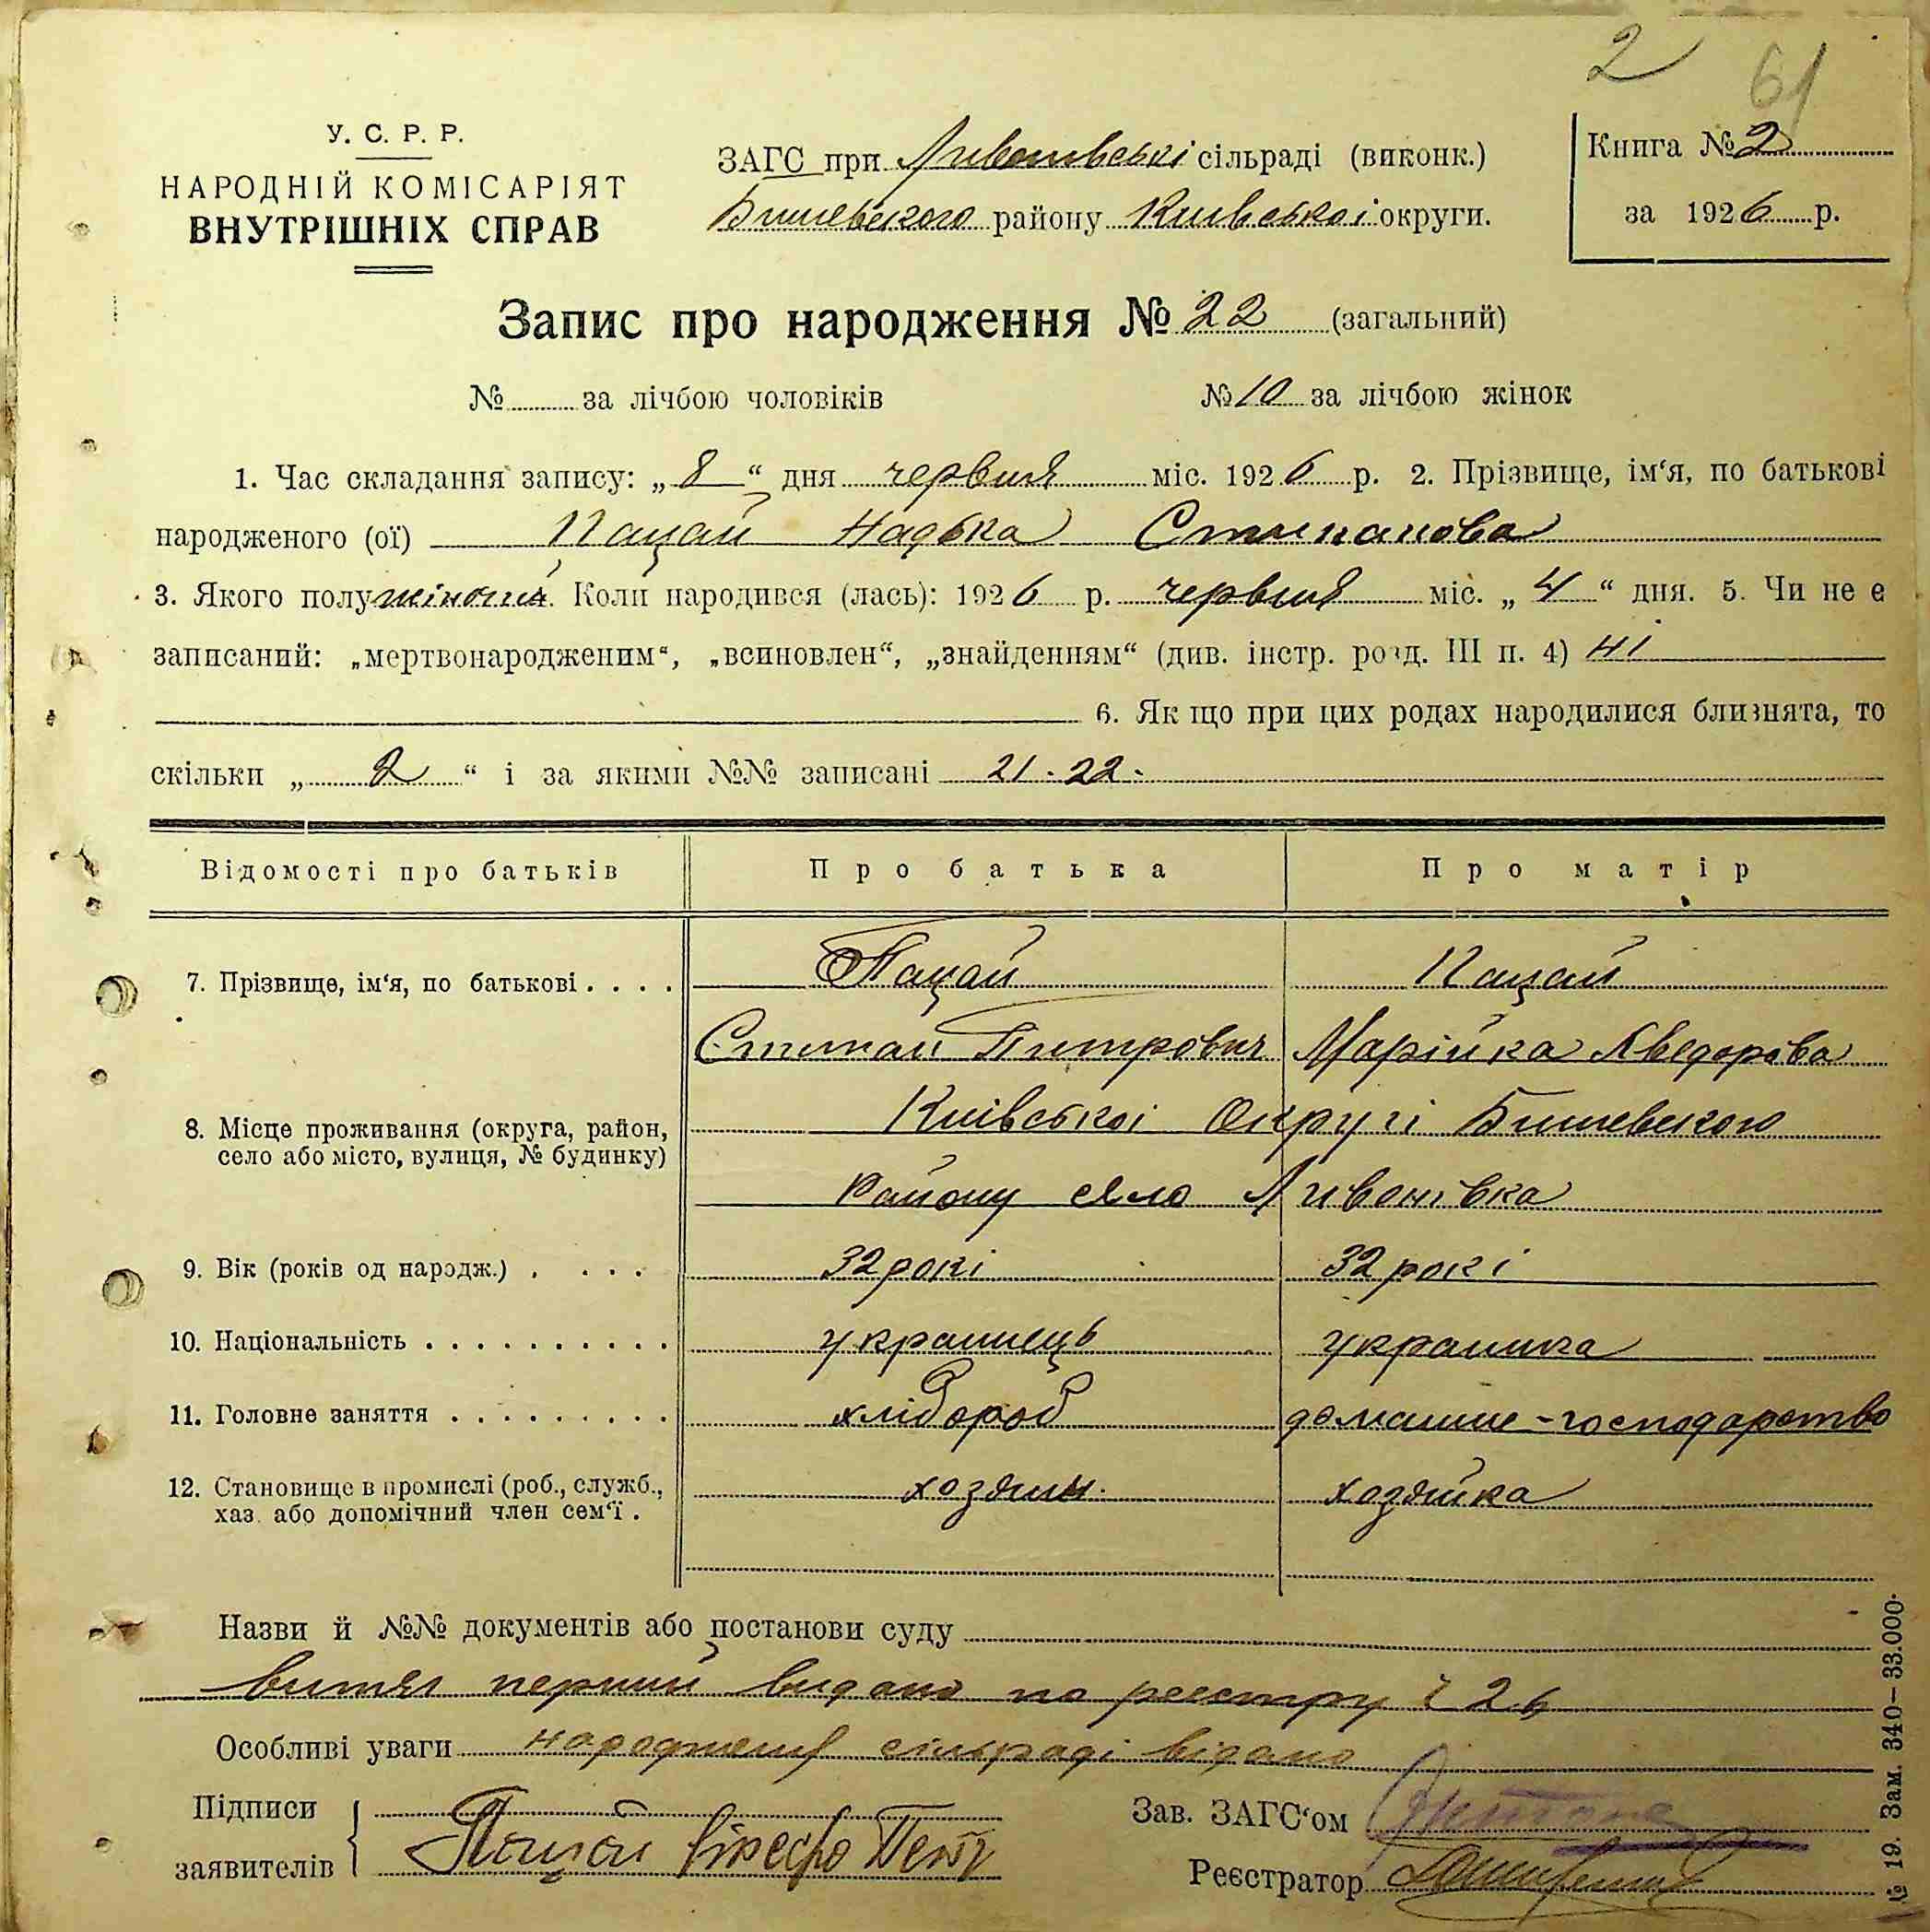 2 61
У. С. Р. Р.
НАРОДНІЙ КОМІСАРІЯТ
ВНУТРІШНІХ СПРАВ
ЗАГС при Ливонівські сільраді (виконк.)
Бишевського району Київської округи.
Книга № 2
за 1926 р.
Запис про народження № 22 (загальний)
№ за лічбою чоловіків № 10 за лічбою жінок
1. Час складання запису: „ 8 “ дня червня міс. 1926 р. 2. Прізвище, ім‘я, по батькові
народженого (ої) Пацай Надька Степанова
3. Якого полу жіночий. Коли народився (лась): 1926 р. червня міс. „ 4 “ дня. 5. Чи не е
записаний: „мертвонародженим“, „всиновлен“, „знайденням“ (див. інстр. розд. III п. 4) Ні
6. Як що при цих родах народилися близнята, то
скільки „ 2 “ і за якими №№ записані 21 - 22.
Відомості про батьків Про батька Про матір
7. Прізвище, ім‘я, по батькові . . . . Пацай Пацай
Степан Питрович Марійка Хведорова
8. Місце проживання (округа, район, село або місто, вулиця, № будинку) Київської Округі Бишевского
Району село Ливонівка
9. Вік (років од народж.) . . . . 32 рокі 32 рокі
10. Національність . . . . . . . . . . . українець українка
11. Головне заняття . . . . . . . . . . хлібороб домашне-господарство
12. Становище в промислі (роб., служб., хаз. або допомічний член сем‘ї . хозяин. хозяйка
Назви й №№ документів або постанови суду
витяг перший видано по реестру 26
Особливі уваги народження сільраді відано
Підписи
заявителів Пацай
Зав. ЗАГС‘ом
Реєстратор
№ 19. Зам. 340—33.000.